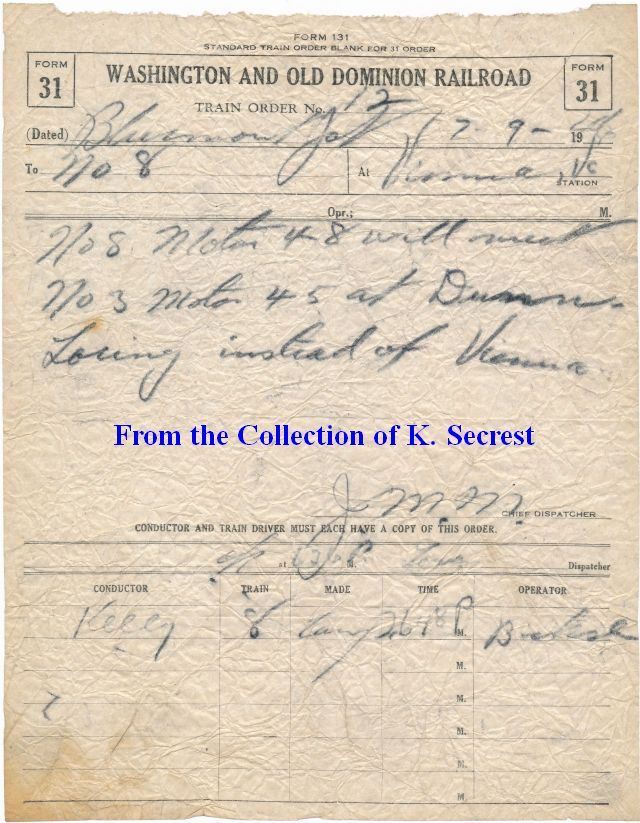 FORM 131
STANDARD TRAIN ORDER BLANK FOR 31 ORDER
FORM 31
WASHINGTON AND OLD DOMINION RAILROAD
FORM 31
TRAIN ORDER No. 12
(Dated) Bluemont Jct 7 9- 19
To No 8 At Vienna, Va STATION
Opr.; M.
No 8 Motor 48 will meet
No 3 Motor 45 at Dunn-
Loring instead of Vienna
From the Collection of K. Secrest
J.M.M. CHIEF DISPATCHER
CONDUCTOR AND TRAIN DRIVER MUST EACH HAVE A COPY OF THIS ORDER.
at M. Dispatcher
CONDUCTOR TRAIN MADE TIME OPERATOR
Kelly 8 Com M.
M.
M.
M.
M.
M.